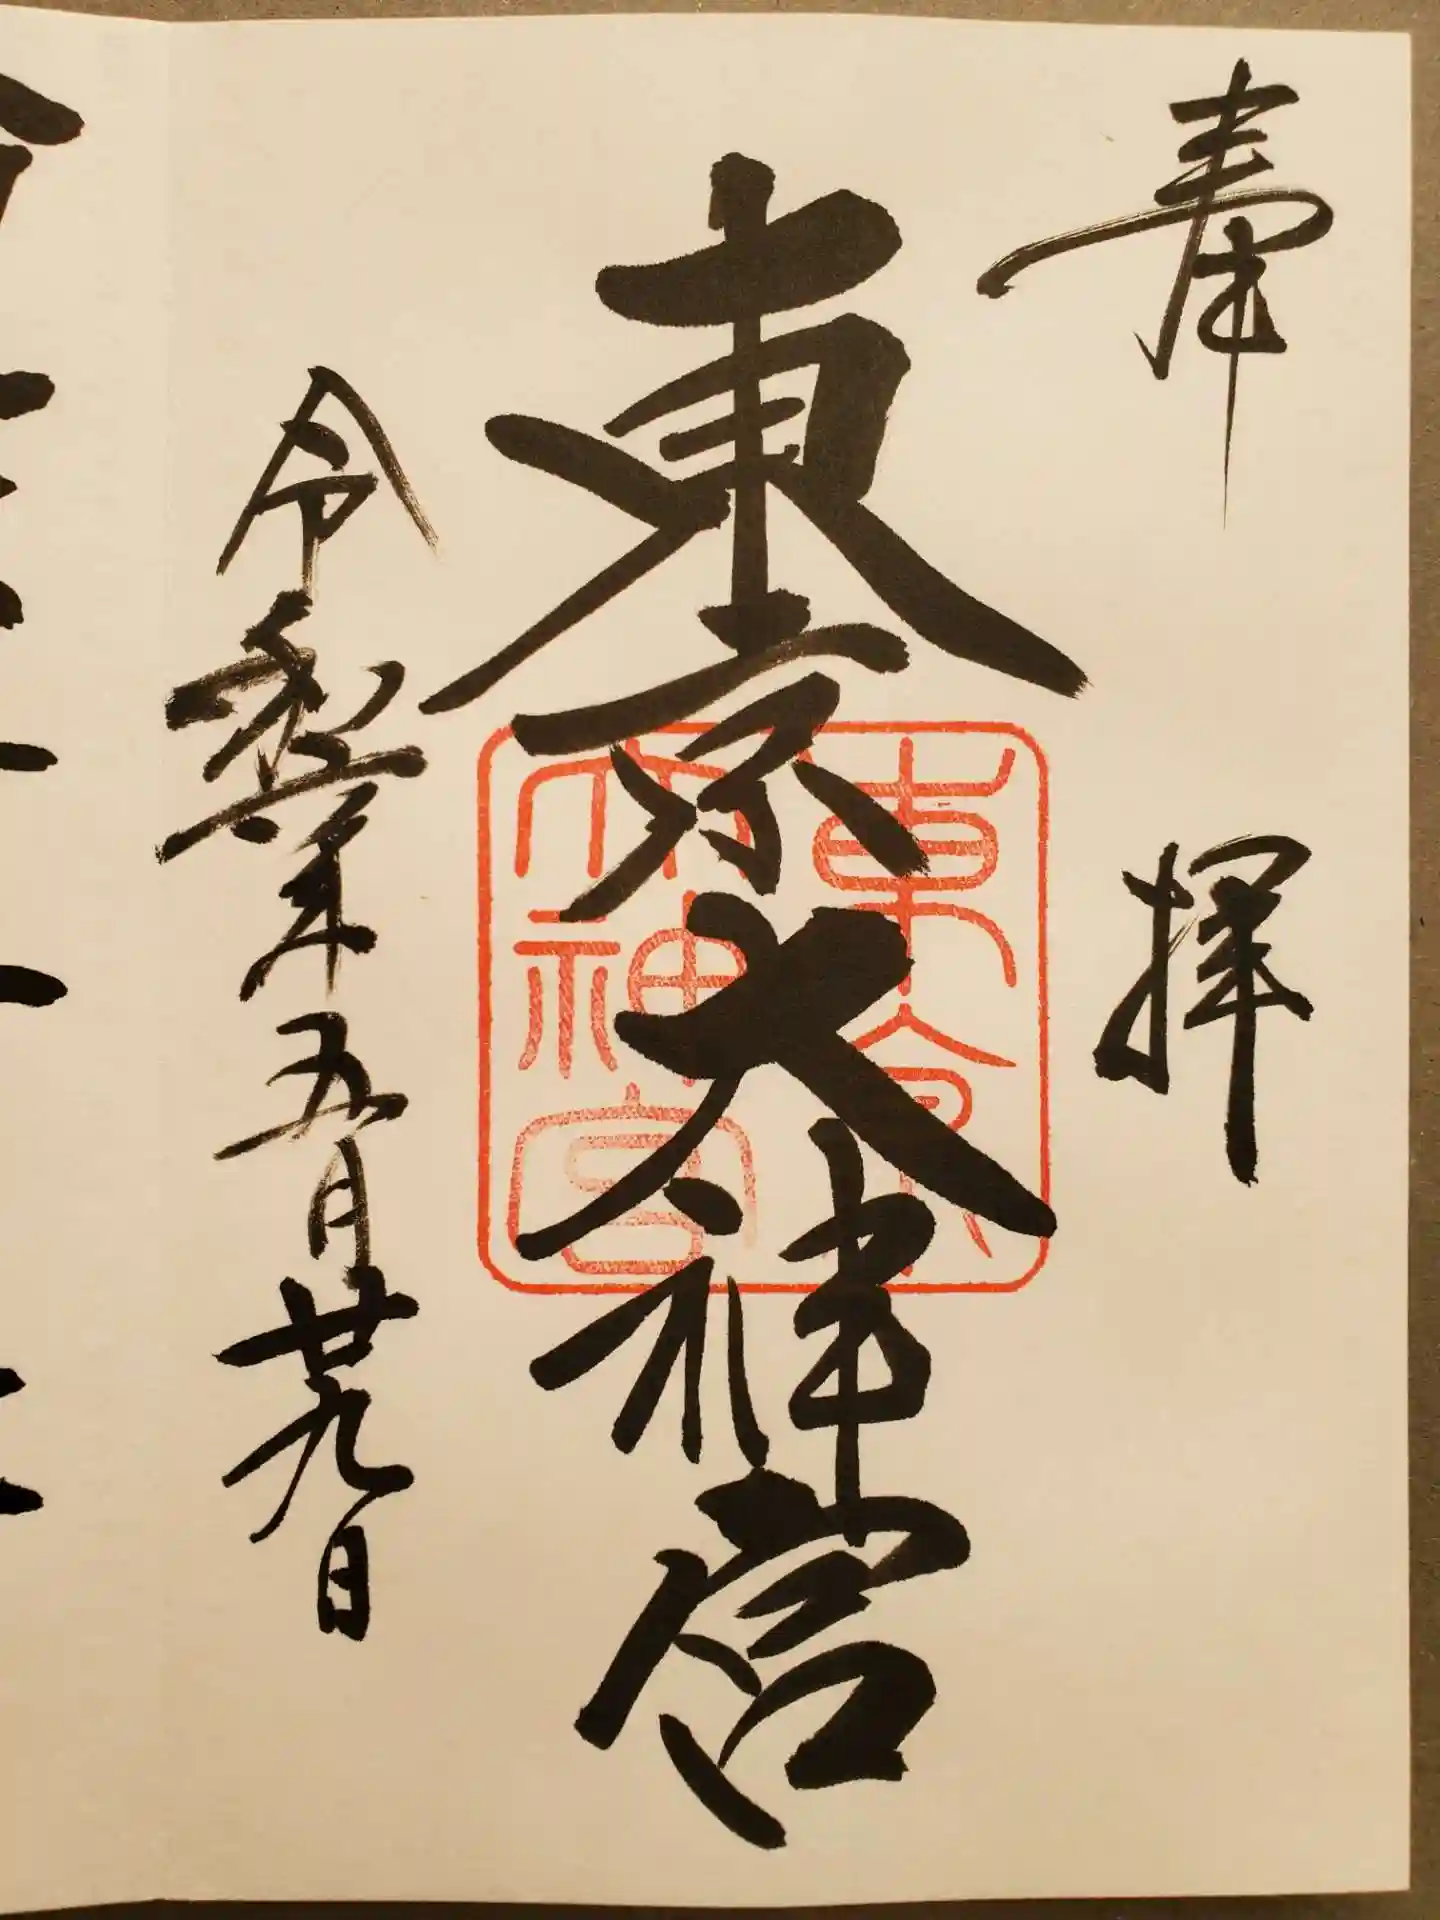 奉拝
東京大神宮
令和六年五月廿九日
東京
大神宮